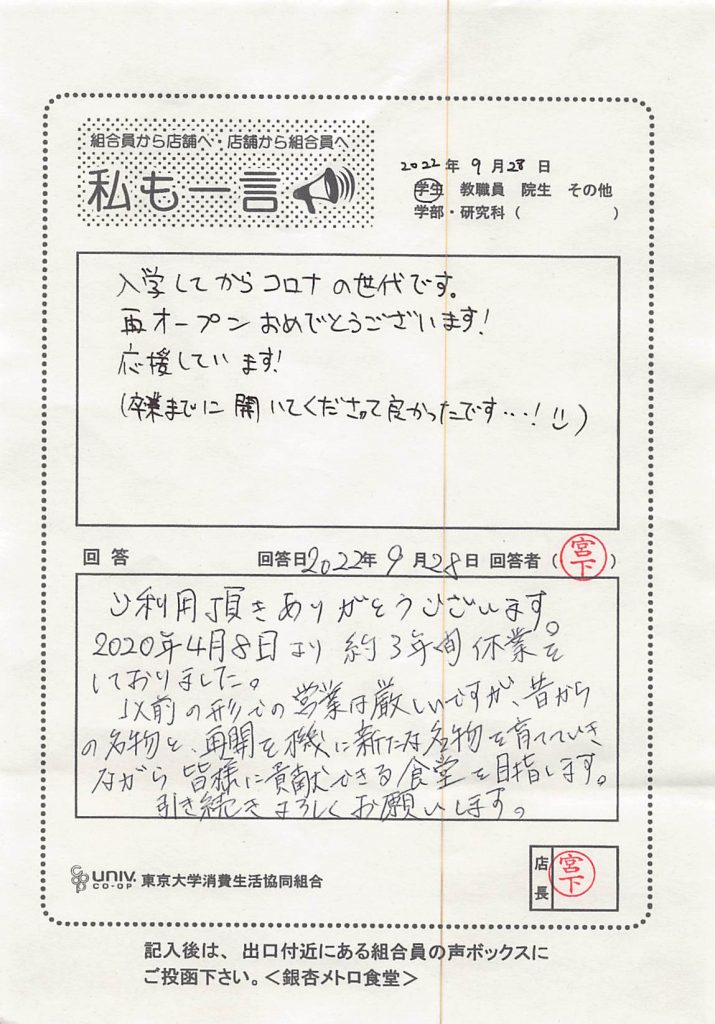 組合員から店舗へ・店舗から組合員へ
私も一言
2022年9月28日
学生 教職員 院生 その他
学部・研究科( )
入学してからコロナの世代です。
再オープンおめでとうございます!
応援しています!
(卒業までに開いてくださって良かったです…!)
回答 回答日2022年9月28日 回答者(宮下)
ご利用頂きありがとうございます。
2020年4月8日より約3年間休業を
しておりました。
以前の形での営業は厳しいですが、昔から
の名物と、再開を機に新たな名物を育てていき
ながら皆様に貢献できる食堂を目指します。
引き続きよろしくお願いします。
UNIV. CO-OP 東京大学消費生活協同組合
店長 宮下
記入後は、出口付近にある組合員の声ボックスに
ご投函下さい。<銀杏メトロ食堂>